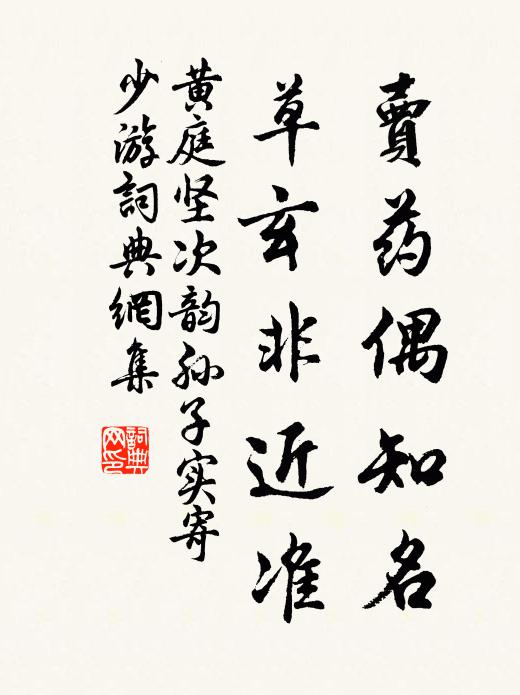 賣药偶知名
草玄非近准
黄庭坚次韵孙子实寄
少游詞典網集
詞典
网印